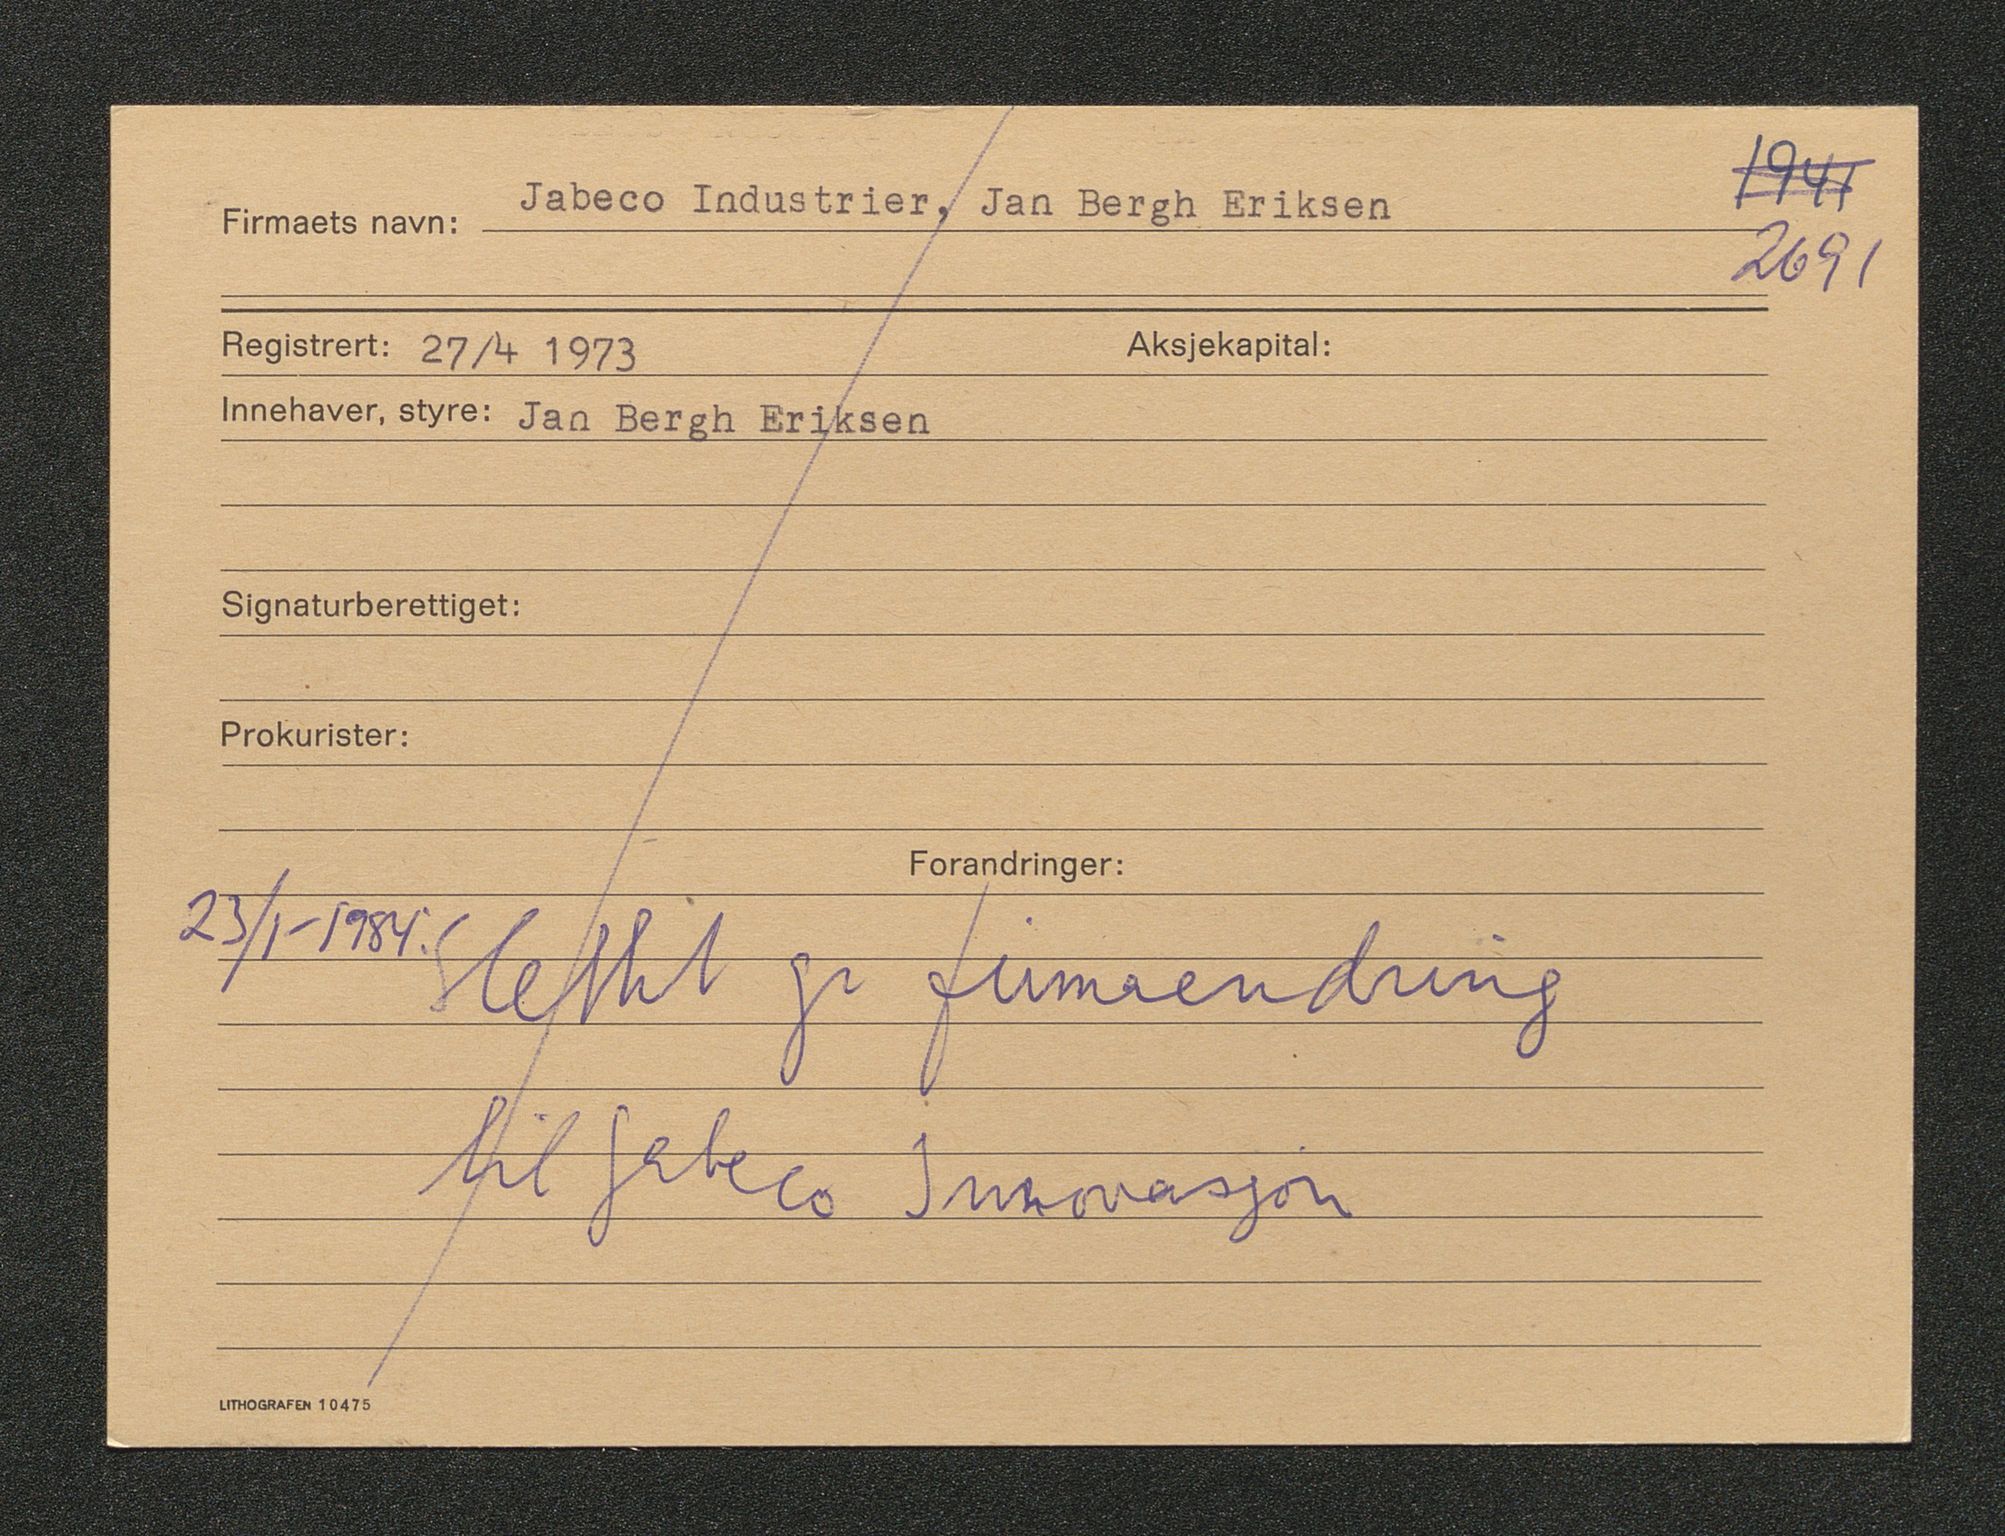 1941
Firmaets navn: Jabeco Industrier, Jan Bergh Eriksen
2691
Registrert: 27/4 1973 Aksjekapital:
Innehaver, styre: Jan Bergh Eriksen
Signaturberettiget:
Prokurister:
Forandringer:
23/1-1984. Slettet gr firmaendring
til Jabeco Innovasjon
LITHOGRAFEN 10475